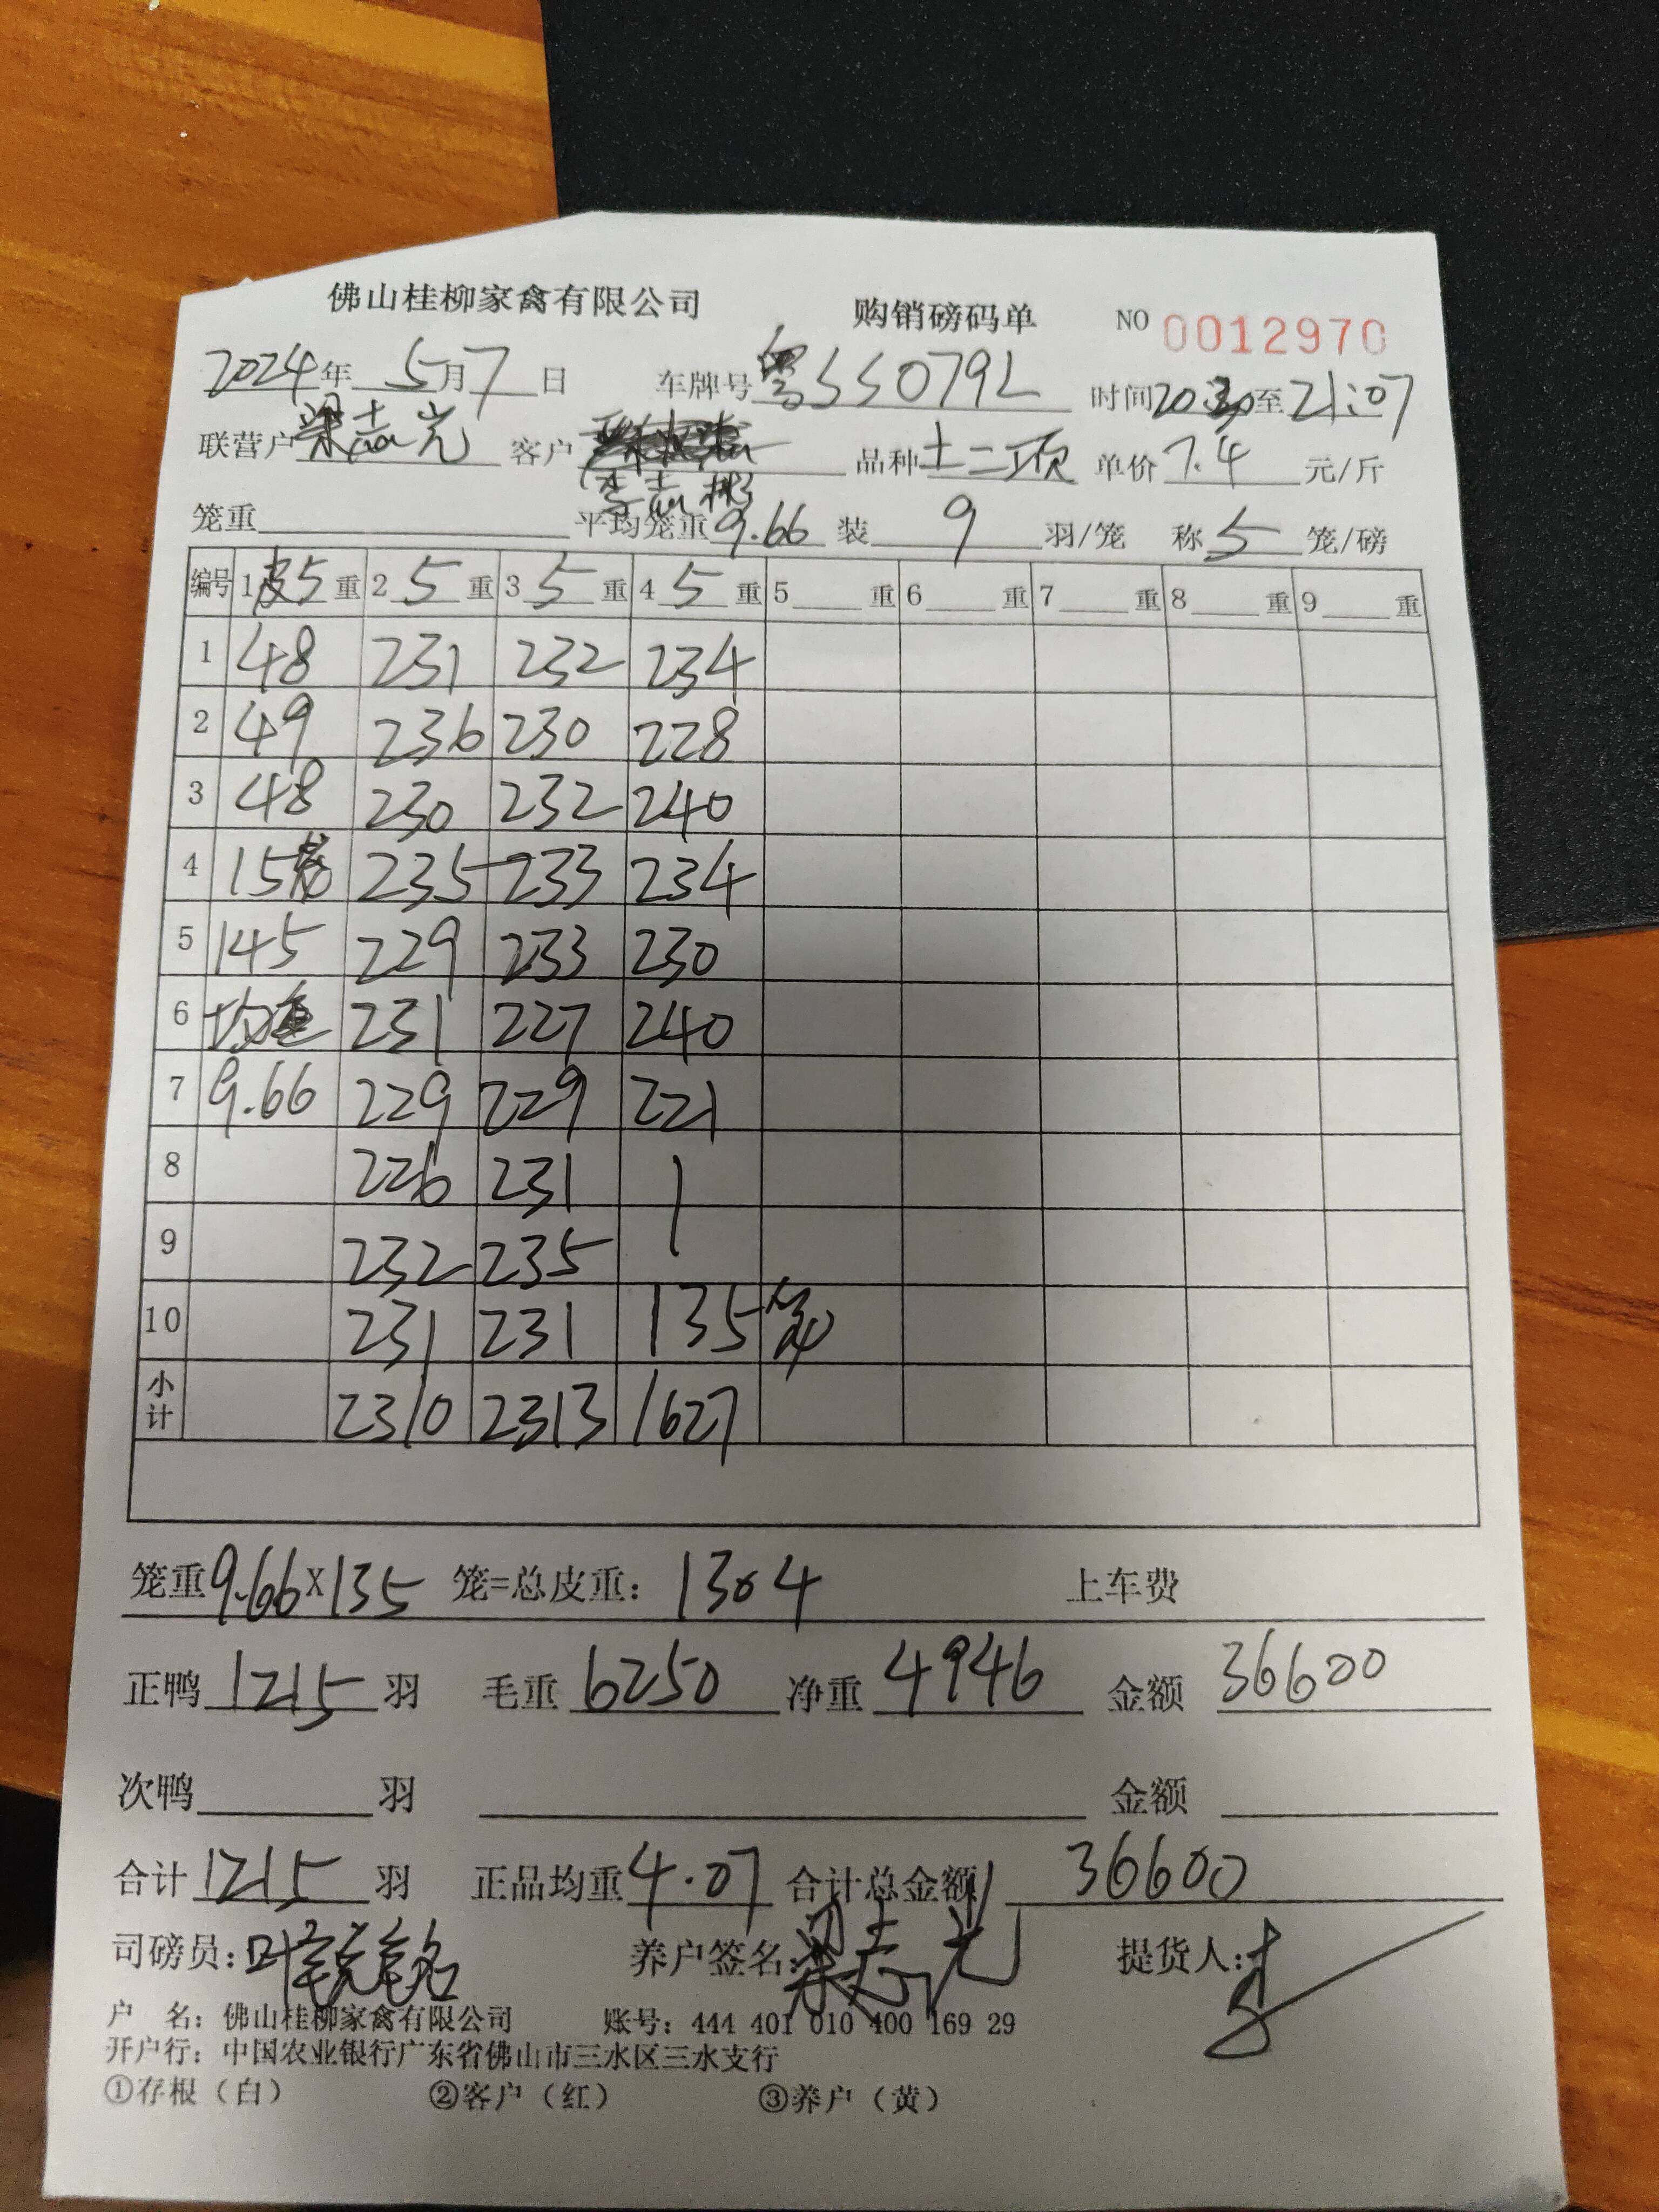 佛山桂柳家禽有限公司 购销磅码单 NO 0012970
2024年 5月7日 车牌号 粤SS079L 时间 20:30 至 21:07
联营户 梁志光 客户 李志彬 品种 十二项 单价 7.4 元/斤
笼重 平均笼重 9.66 装 9 羽/笼 称 5 笼/磅
编号 1 皮5 重 2 5 重 3 5 重 4 5 重 5 重 6 重 7 重 8 重 9 重
1 48 231 232 234
2 49 236 230 228
3 48 230 232 240
4 15笼 235 233 234
5 145 229 233 230
6 均重 231 227 240
7 9.66 229 229 221
8 226 231
9 232 235
10 231 231 135笼
小计 2310 2313 1627
笼重 9.66 X 135 笼=总皮重: 1304 上车费
正鸭 1215 羽 毛重 6250 净重 4946 金额 36600
次鸭 羽 金额
合计 1215 羽 正品均重 4.07 合计总金额 36600
司磅员: 养户签名: 梁志光 提货人: 李
户 名: 佛山桂柳家禽有限公司 账号: 444 401 010 400 169 29
开户行: 中国农业银行广东省佛山市三水区三水支行
①存根（白） ②客户（红） ③养户（黄）